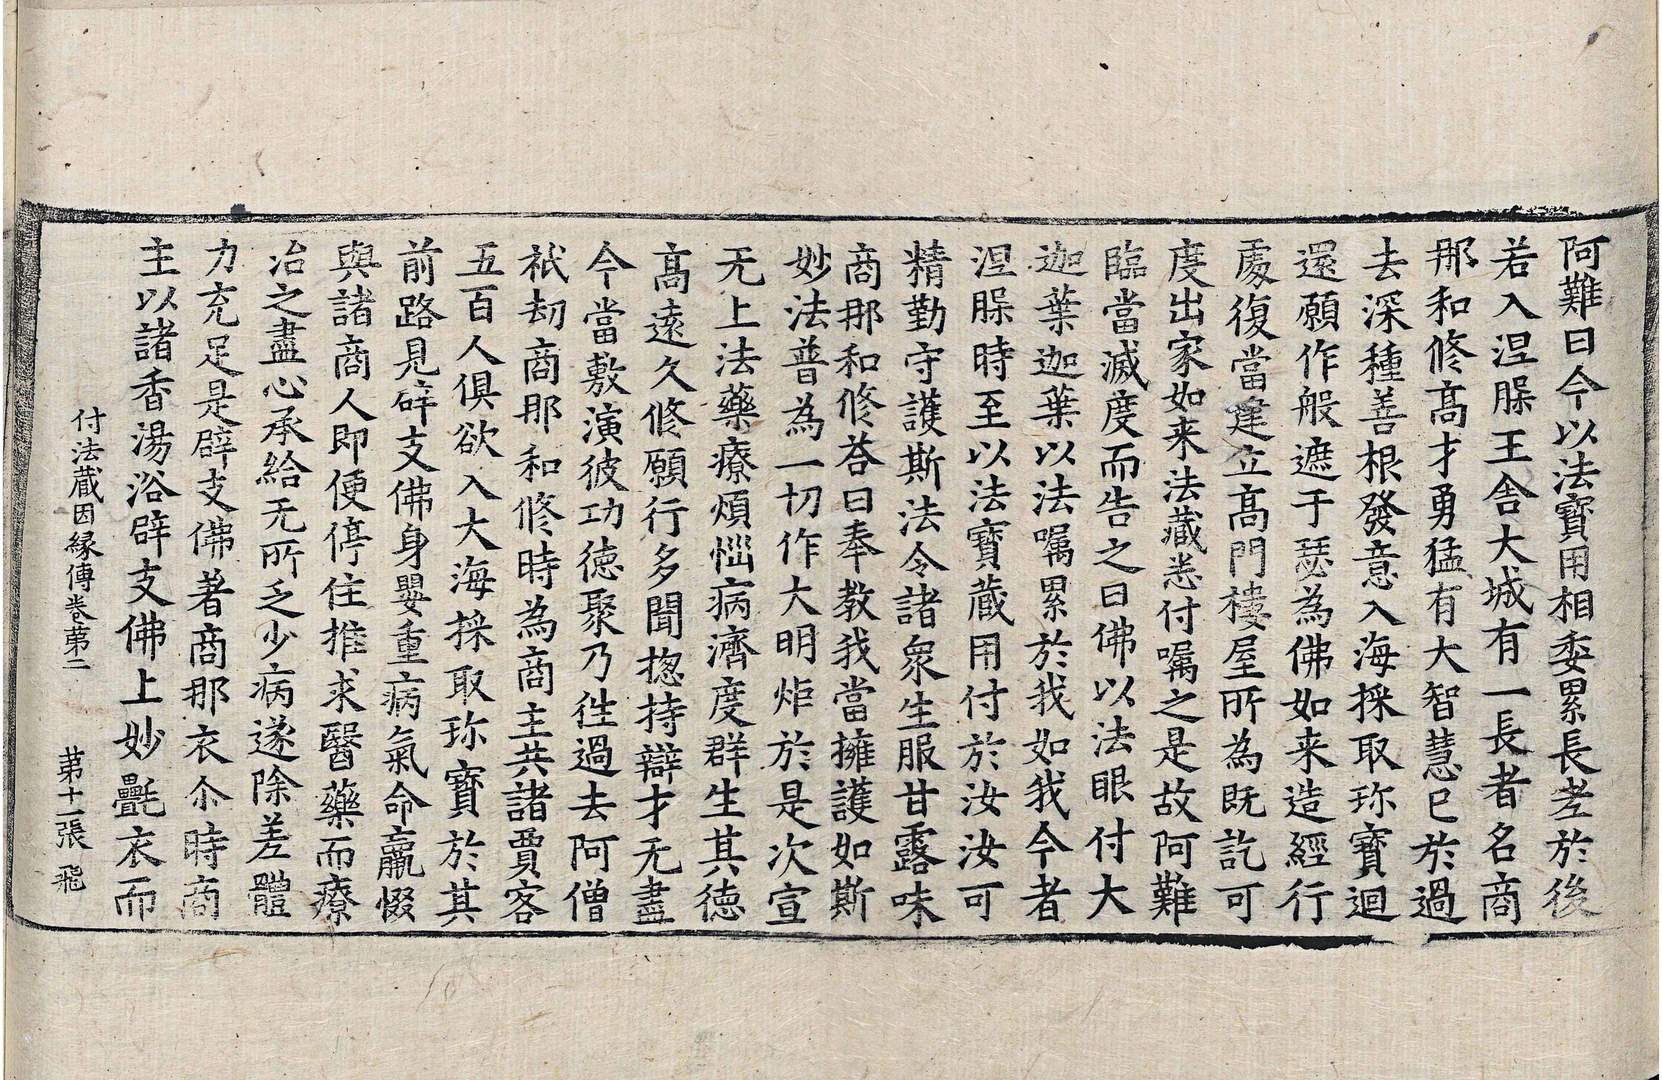 阿難曰今以法寶用相委累長老於後
若入涅槃王舍大城有一長者名商
那和修高才勇猛有大智慧已於過
去深種善根發意入海採取珎寶迴
還願作般遮于瑟為佛如来造經行
處復當建立高門樓屋所為既訖可
度出家如来法藏悉付囑之是故阿難
臨當滅度而告之曰佛以法眼付大
迦葉迦葉以法囑累於我如我今者
涅槃時至以法寶藏用付於汝汝可
精勤守護斯法令諸衆生服甘露味
商那和修荅曰奉教我當擁護如斯
妙法普為一切作大明炬於是次宣
无上法藥療煩惱病濟度群生其德
高遠久修願行多聞揔持辯才无盡
今當敷演彼功德聚乃往過去阿僧
祇劫商那和修時為商主共諸賈客
五百人俱欲入大海採取珎寶於其
前路見辟支佛身嬰重病氣命羸惙
與諸商人即便停住推求醫藥而療
治之盡心承給无所乏少病遂除差體
力充足是辟支佛著商那衣尒時商
主以諸香湯浴辟支佛上妙㲲衣而
付法藏因縁傳卷苐二　苐十二張　飛